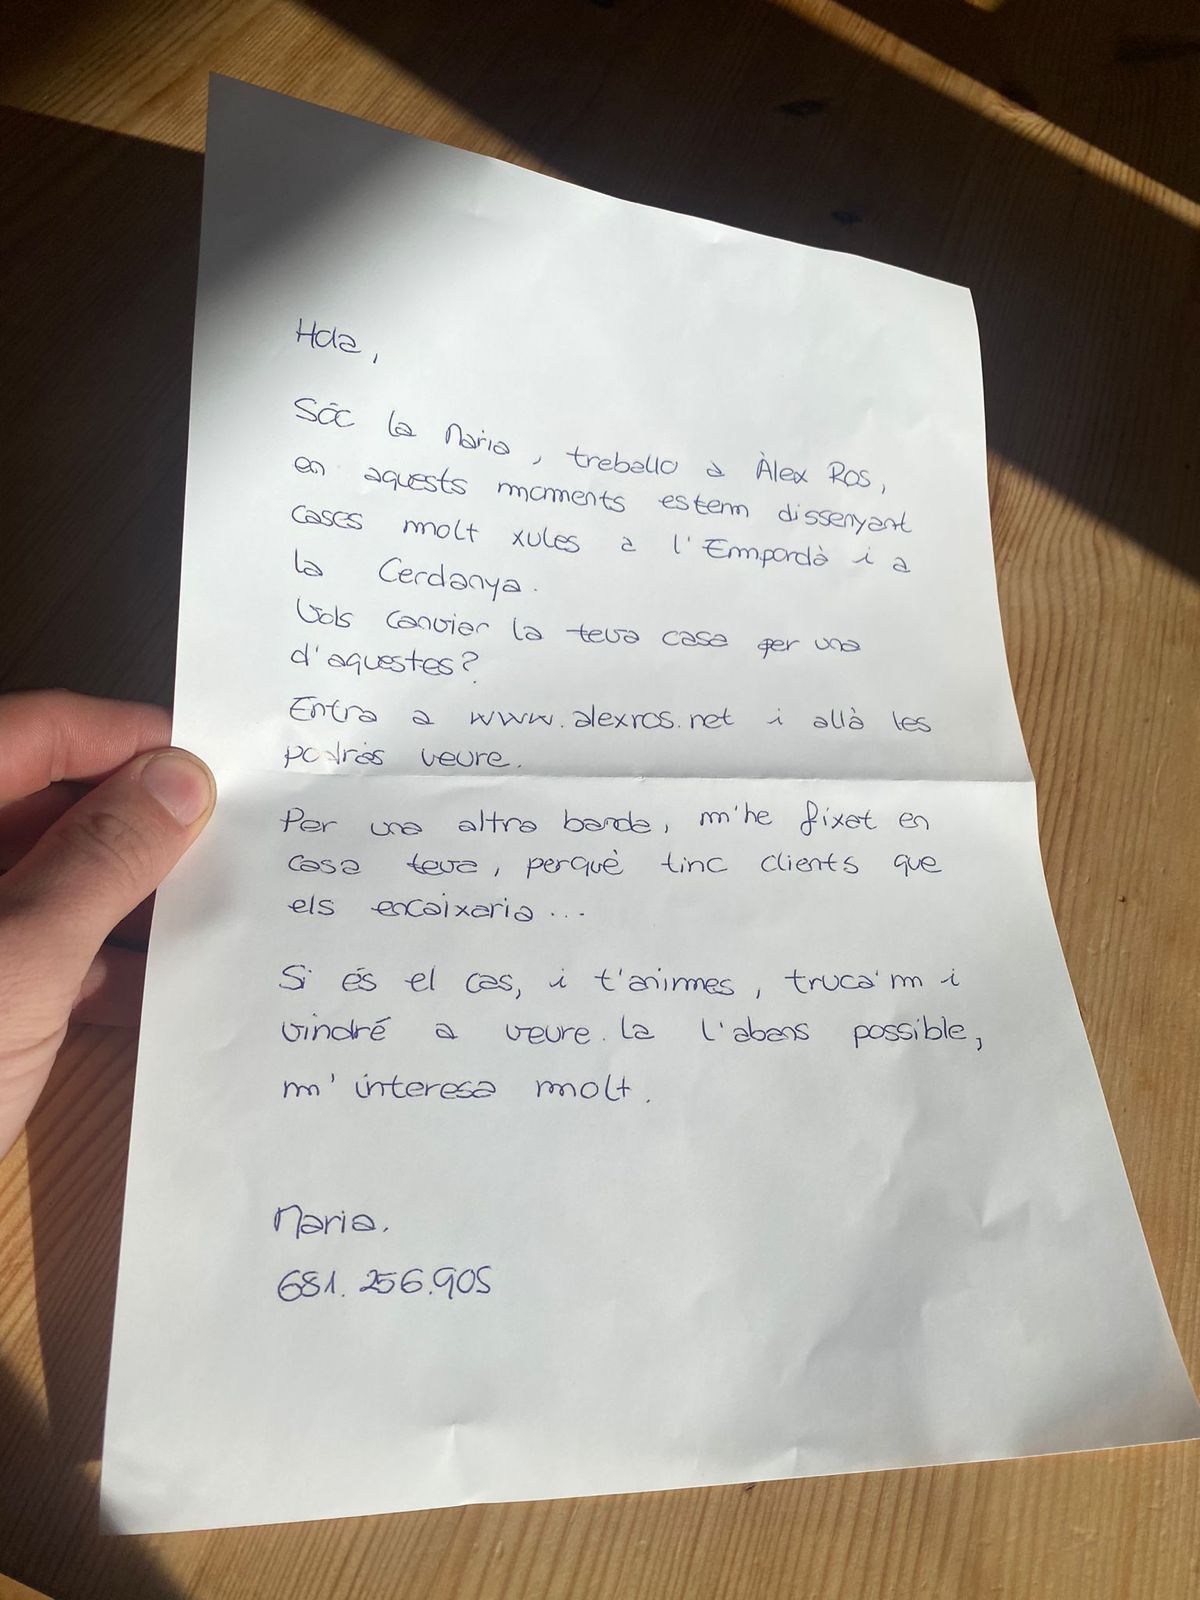 Hola,
Sóc la Maria, treballo a Àlex Ros,
en aquests moments estem dissenyant
cases molt xules a l'Empordà i a
la Cerdanya.
Vols canviar la teva casa per una
d'aquestes?
Entra a www.alexros.net i allà les
podràs veure.
Per una altra banda, m'he fixat en
casa teva, perquè tinc clients que
els encaixaria...
Si és el cas, i t'animes, truca'm i
vindré a veure.la l'abans possible,
m'interesa molt.
Maria.
681.256.905